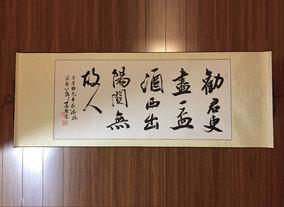 勸君更
盡一盃
酒西出
陽関無
故人